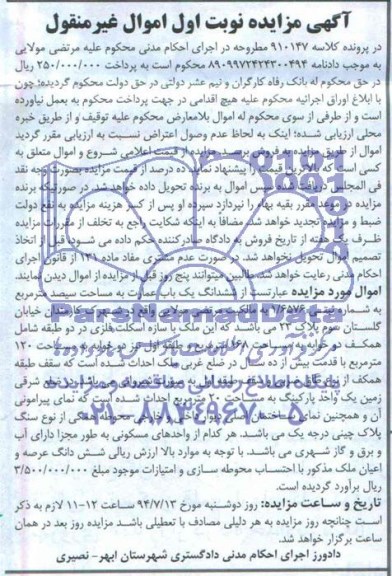 آگهی مزایده نوبت اول اموال غیرمنقول
در پرونده کلاسه ۹۱۰۱۴۷ مطروحه در اجرای احکام مدنی محکوم علیه مرتضی مولایی
به موجب دادنامه ۸۹۰۹۹۷۲۴۲۴۳۰۰۴۹۴ محکوم است به پرداخت ۲۵۰/۰۰۰/۰۰۰ ریال
در حق محکوم له بانک رفاه کارگران و نیم عشر دولتی در حق دولت محکوم گردیده؛ چون
با ابلاغ اوراق اجرائیه محکوم علیه هیچ اقدامی در جهت پرداخت محکوم به بعمل نیاورده
است و از طرفی از سوی محکوم له اموال بلامعارض محکوم علیه توقیف و از طریق خبره
محلی ارزیابی شده؛ اینک به لحاظ عدم وصول اعتراض نسبت به ارزیابی مقرر گردید
اموال از طریق مزایده به فروش برسد. مزایده از قیمت اعلامی شروع و اموال متعلق به
کسی است که بالاترین قیمت را پیشنهاد نماید. ده درصد از قیمت مزایده بصورت وجه نقد
فی المجلس دریافت سپس اموال به برنده تحویل داده خواهد شد. در صورتیکه برنده
مزایده در موعد مقرر بقیه بهاء را نپردازد سپرده او پس از کسر هزینه مزایده به نفع دولت
ضبط و مزایده تجدید خواهد شد. مضافاً به اینکه شکایت راجع به تخلف از مقررات مزایده
ظرف یک هفته از تاریخ فروش به دادگاه صادرکننده حکم داده می شود. قبل از اتخاذ
تصمیم اموال تحویل نخواهد شد. در صورت عدم مشتری مفاد ماده ۱۳۱ از قانون اجرای
احکام مدنی رعایت خواهد شد. طالبین میتوانند پنج روز قبل از مزایده از اموال دیدن نمایند.
اموال مورد مزایده عبارتست از ششدانگ یک باب عمارت به مساحت سیصد مترمربع
به شماره ثبتی مالکیت مرتضی مولایی واقع در خیابان
گلستان سوم پلاک ۲۳ می باشند که این ملک با سازه اسکلت فلزی در دو طبقه شامل
همکف دو خوابه به مساحت ۱۶۸ مترمربع و طبقه اول نیز دو خوابه به مساحت ۱۲۰
مترمربع با قدمت بیش از ده سال در ضلع غربی ملک احداث شده است که سقف طبقه
همکف از سقف طبقه اول می باشد. در ضلع شرقی
زمین یک واحد پارکینگ به مساحت ۲۰ مترمربع احداث شده است که نمای پیرامونی
آن و همچنین نمای ساختمان محوطه همگی از نوع سنگ
پلاک چینی درجه یک می باشد. هر کدام از واحدهای مسکونی به طور مجزا دارای آب
و برق و گاز شهری می باشد. با توجه به موارد بالا ارزش ریالی شش دانگ عرصه و
اعیان ملک مذکور با احتساب محوطه سازی و امتیازات موجود مبلغ ۳/۵۰۰/۰۰۰/۰۰۰
ریال برآورد گردیده است.
تاریخ و ساعت مزایده: روز دوشنبه مورخ ۹۴/۷/۱۳ ساعت ۱۲-۱۱ لازم به ذکر
است چنانچه روز مزایده به هر دلیلی مصادف با تعطیلی باشد مزایده روز بعد در همان
ساعت برگزار خواهد شد.
دادورز اجرای احکام مدنی دادگستری شهرستان ابهر- نصیری
ParsNamadData
۰۲۱-۸۸۳۴۹۶۷۰-۵